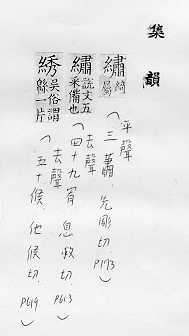 集
韻
繡 綺屬
（平聲
三蕭 先彫切 P173）
繡 說文五采備也
（去聲
四十九宥 息救切 P613）
綉 吳俗謂緜一片
（去聲
五十候 他候切 P619）